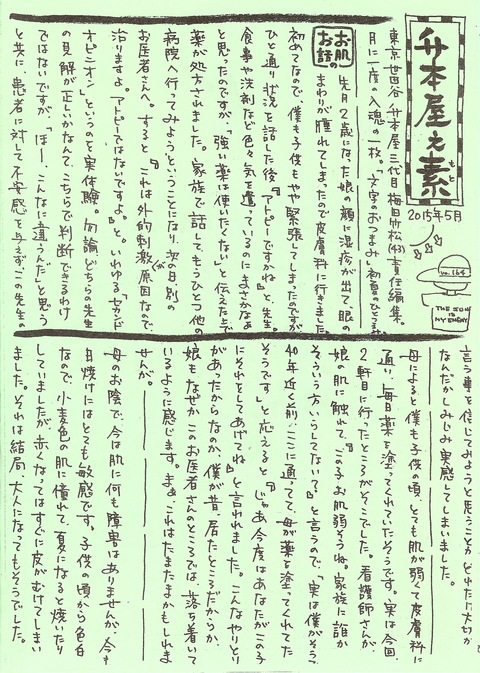 升本屋ヱ素
もと
2015年5月
vo.164
THE SUN IS MY ENEMY
東京 世田谷 升本屋三代目 梅田竹松(44)責任編集。
月に一度の入魂の一枚。「文字のおつまみ」初夏のひとつまみ
お肌のお話
先月2歳になった娘の顔に湿疹が出て、眼の
まわりが腫れてしまったので皮膚科に行きました。
初めてなので、僕も子供もやや緊張してしまったのですが、
ひと通り状況を話した後『アトピーですかね』と先生。
食事や洗剤など色々気を遣っているのにまさかなぁ
と思ったのですが、「強い薬は使いたくない」と伝えた上で
薬が処方されました。家族で話してもうひとつ他の
病院へ行ってみようということになり、次の日、別の
お医者さんへ。すると『これは外的刺激が原因なので、
治りますよ。アトピーではないですよ。』と。いわゆる、セカンド
オピニオンというのを実体験。勿論、どちらの先生
の見解が正しいかなんて、こちらで判断できるわけ
ではないですが、「ほー、こんなに違うんだ」と思う
と共に、患者に対して不安感を与えず、この先生の
言う事を信じてみようと思うことが、どれだけ大切か
なんだかしみじみ実感してしまいました。
母によると僕も子供の頃、とても肌が弱くて皮膚科に
通い、毎日薬を塗ってくれていたそうです。実は今回、
2軒目に行ったところがそこでした。看護師さんが、
娘の肌に触れて、『この子お肌弱そうね。家族に誰か
そういう方いらしてない？』と言うので、「実は僕がそう、
40年近く前、ここに通ってて、母が薬を塗ってくれてた
そうです」と応えると『じゃあ今度はあなたがこの子
にそれをしてあげてね』と言われました。こんなやりとり
があったからなのか、僕が昔、居たところだからか、
娘もなぜかこのお医者さんのところでは、落ち着いて
いるように感じます。まぁ、これはたまたまかもしれま
せんが。
母のお陰で、今は肌に何も障害はありませんが、今も
日焼けにはとても敏感です。子供の頃から色白
なので、小麦色の肌に憧れて、夏になると焼いたり
していましたが、赤くなってはすぐに皮がむけてしまい
ました。それは結局、大人になってもそうでした。